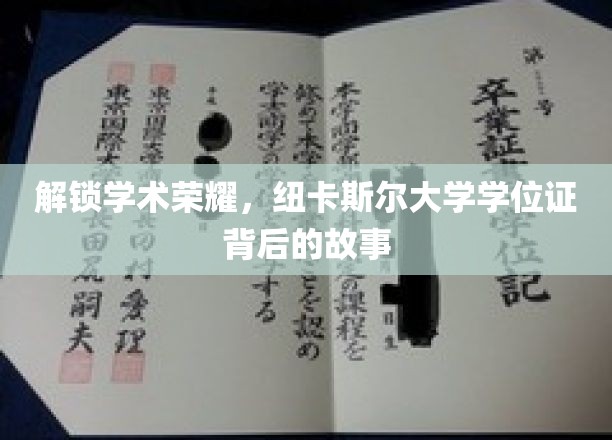 解锁学术荣耀，纽卡斯尔大学学位证
背后的故事
第 号
卒業証 学位記
本学商学部 定の課程を
日生
修めて本学 ことを認め
学士(商学)の学 する
平成
東京国際大学 田村愛理
東京国際大 長田尻嗣夫